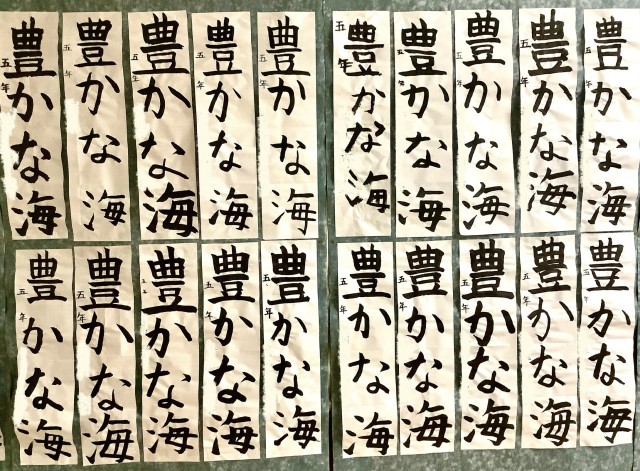 豊かな海
五年
豊かな海
五年
豊かな海
五年
豊かな海
五年
豊かな海
五年
豊かな海
五年
豊かな海
五年
豊かな海
五年
豊かな海
五年
豊かな海
五年
豊かな海
五年
豊かな海
五年
豊かな海
五年
豊かな海
五年
豊かな海
五年
豊かな海
五年
豊かな海
五年
豊かな海
豊かな海
五年
豊かな海
五年